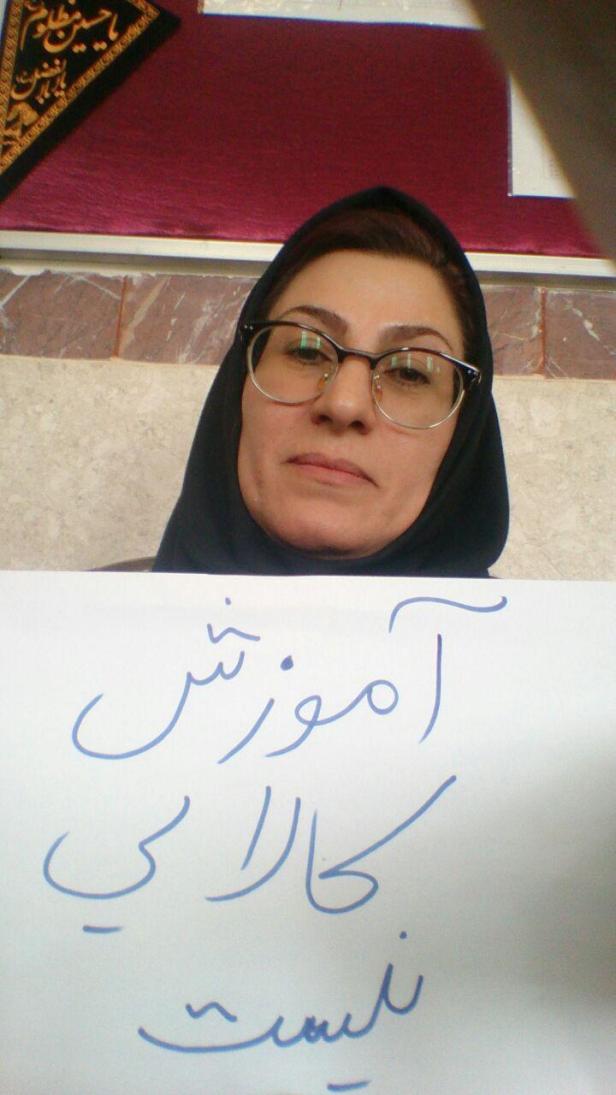 یا حسین مظلوم
یا اباالفضل
آموزش
کالایی
نیست